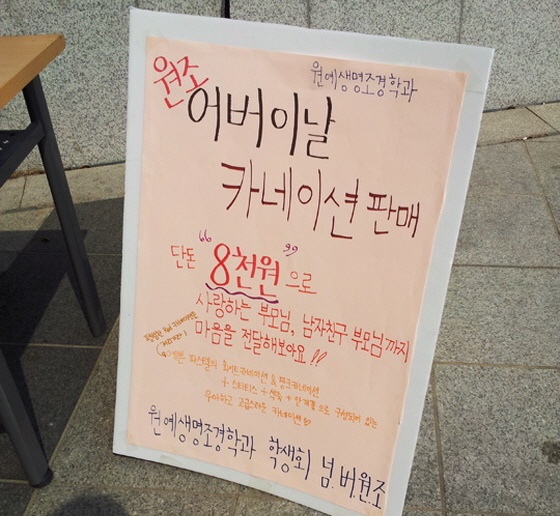 원예생명조경학과
원조
어버이날
카네이션 판매
단돈 “8천원”으로
사랑하는 부모님, 남자친구 부모님까지
마음을 전달해보아요!!
예쁜 파스텔의 화이트카네이션 & 핑크카네이션
+ 스타티스 + 석죽 + 안개꽃으로 구성되어 있는
우아하고 고급스러운 카네이션
원예생명조경학과 학생회 넘.버.원.조